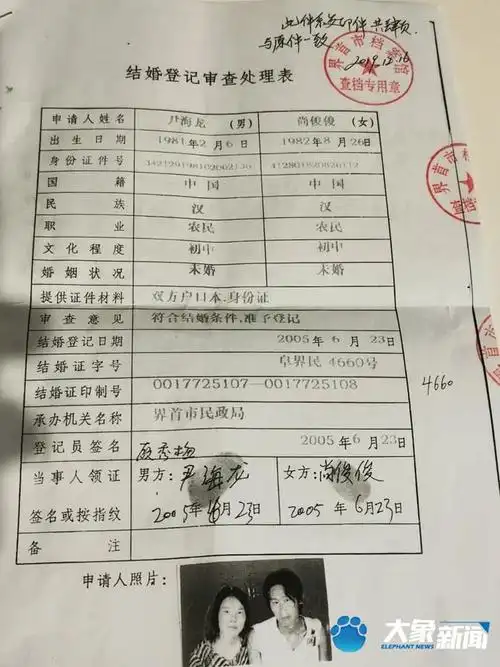 此件系复印件 共肆页
与原件一致
2019.12.16
界首市档案馆
查档专用章
结婚登记审查处理表
申请人姓名 尹海龙 (男) 尚俊俊 (女)
出生日期 1981年2月6日 1982年8月26日
身份证件号
国籍 中国 中国
民族 汉 汉
职业 农民 农民
文化程度 初中 初中
婚姻状况 未婚 未婚
提供证件材料 双方户口本.身份证
审查意见 符合结婚条件,准予登记
结婚登记日期 2005年6月23日
结婚证字号 阜界民 4660号
4660
结婚证印制号 0017725107—0017725108
承办机关名称 界首市民政局
登记员签名 2005年6月23日
当事人领证 男方:尹海龙 女方:尚俊俊
签名或按指纹 2005年6月23日 2005年6月23日
备注
申请人照片:
大象新闻
ELEPHANT NEWS